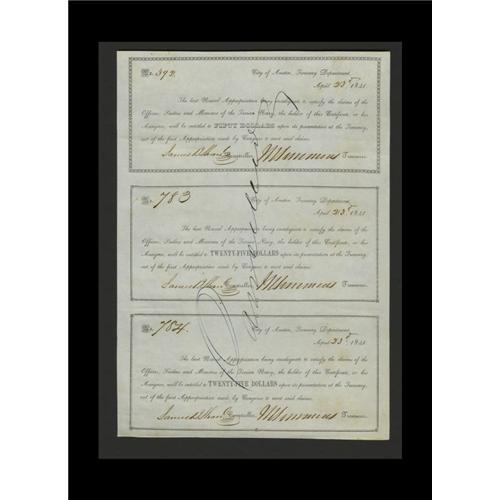 No. 392. City of Austin, Treasury Department,
April 23d 1841
The last Naval Appropriation being inadequate to satisfy the claims of the
Officers, Sailors and Marines of the Texian Navy, the holder of this Certificate, or his
Assignee, will be entitled to FIFTY DOLLARS upon its presentation at the Treasury,
out of the first Appropriation made by Congress to meet said claims.
James B Shaw Comptroller. Treasurer.
No. 783 City of Austin, Treasury Department,
April 23d 1841
The last Naval Appropriation being inadequate to satisfy the claims of the
Officers, Sailors and Marines of the Texian Navy, the holder of this Certificate, or his
Assignee, will be entitled to TWENTY-FIVE DOLLARS upon its presentation at the Treasury,
out of the first Appropriation made by Congress to meet said claims.
James B Shaw Comptroller. Treasurer.
No. 784. City of Austin, Treasury Department,
April 23d 1841
The last Naval Appropriation being inadequate to satisfy the claims of the
Officers, Sailors and Marines of the Texian Navy, the holder of this Certificate, or his
Assignee, will be entitled to TWENTY-FIVE DOLLARS upon its presentation at the Treasury,
out of the first Appropriation made by Congress to meet said claims.
James B Shaw Comptroller. Treasurer.